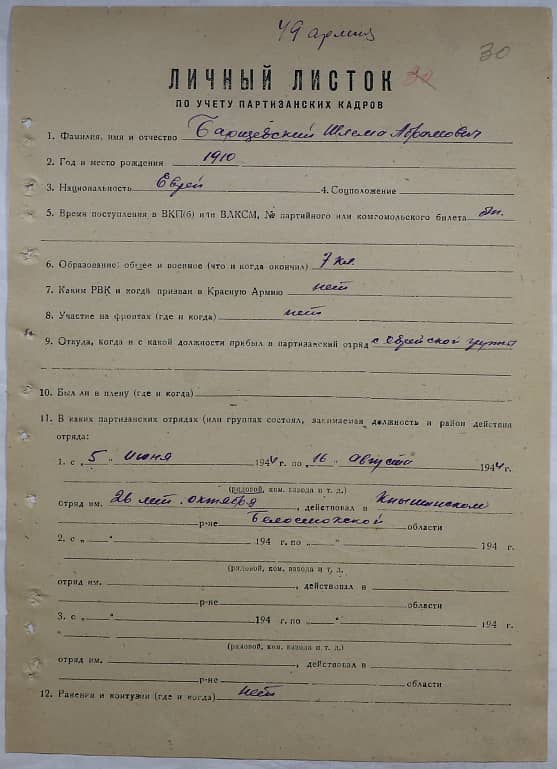 49 армия
30
ЛИЧНЫЙ ЛИСТОК 30
ПО УЧЕТУ ПАРТИЗАНСКИХ КАДРОВ
1. Фамилия, имя и отчество Барщевский Шлема Абрамович
2. Год и место рождения 1910
3. Национальность Еврей 4. Соцположение
5. Время поступления в ВКП(б) или ВЛКСМ, № партийного или комсомольского билета бп.
6. Образование: общее и военное (что и когда окончил) 7 кл.
7. Каким РВК и когда призван в Красную Армию нет
8. Участие на фронтах (где и когда) нет
9. Откуда, когда и с какой должности прибыл в партизанский отряд с еврейской группы
10. Был ли в плену (где и когда)
11. В каких партизанских отрядах (или группах состоял, занимаемая должность и район действия
отряда:
1. с „ 5 " июня 1944 г. по „ 16 " августа 1944 г.
(рядовой, ком. взвода и т. д.)
отряд им. 26 лет октября, действовал в Кнышинском
р-не Белостокской области
2. с „ " 194 г. по „ " 194 г.
(рядовой, ком. взвода и т. д.
отряд им. , действовал в
р-не области
3. с „ " 194 г. по „ " 194 г.
(рядовой, ком. взвода и т. д.)
отряд им. , действовал в
р-не области
12. Ранения и контузии (где и когда) нет